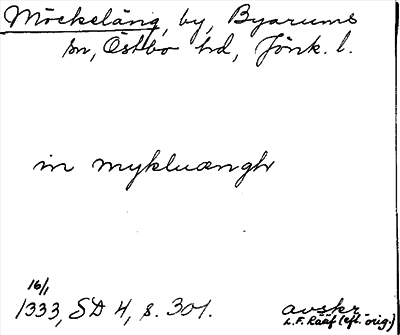 Möckeläng, by, Byarums
sn, Östbo hd, Jönk. l.
in mykluængh
16/1
1333, SD 4, s. 301.
avskr.
L.F. Rääf (eft. orig.)